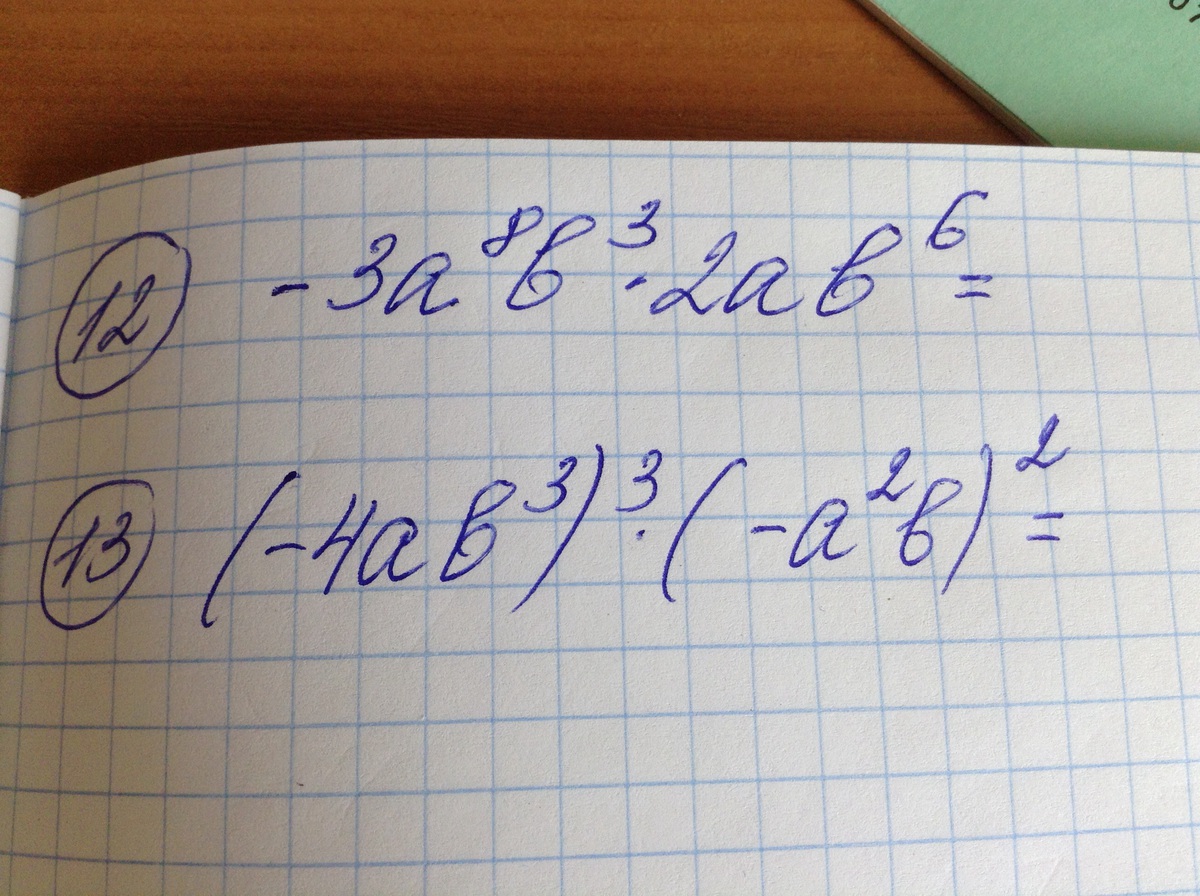 12 -3a⁸b³·2ab⁶=
13 (-4ab³)³·(-a²b)²=